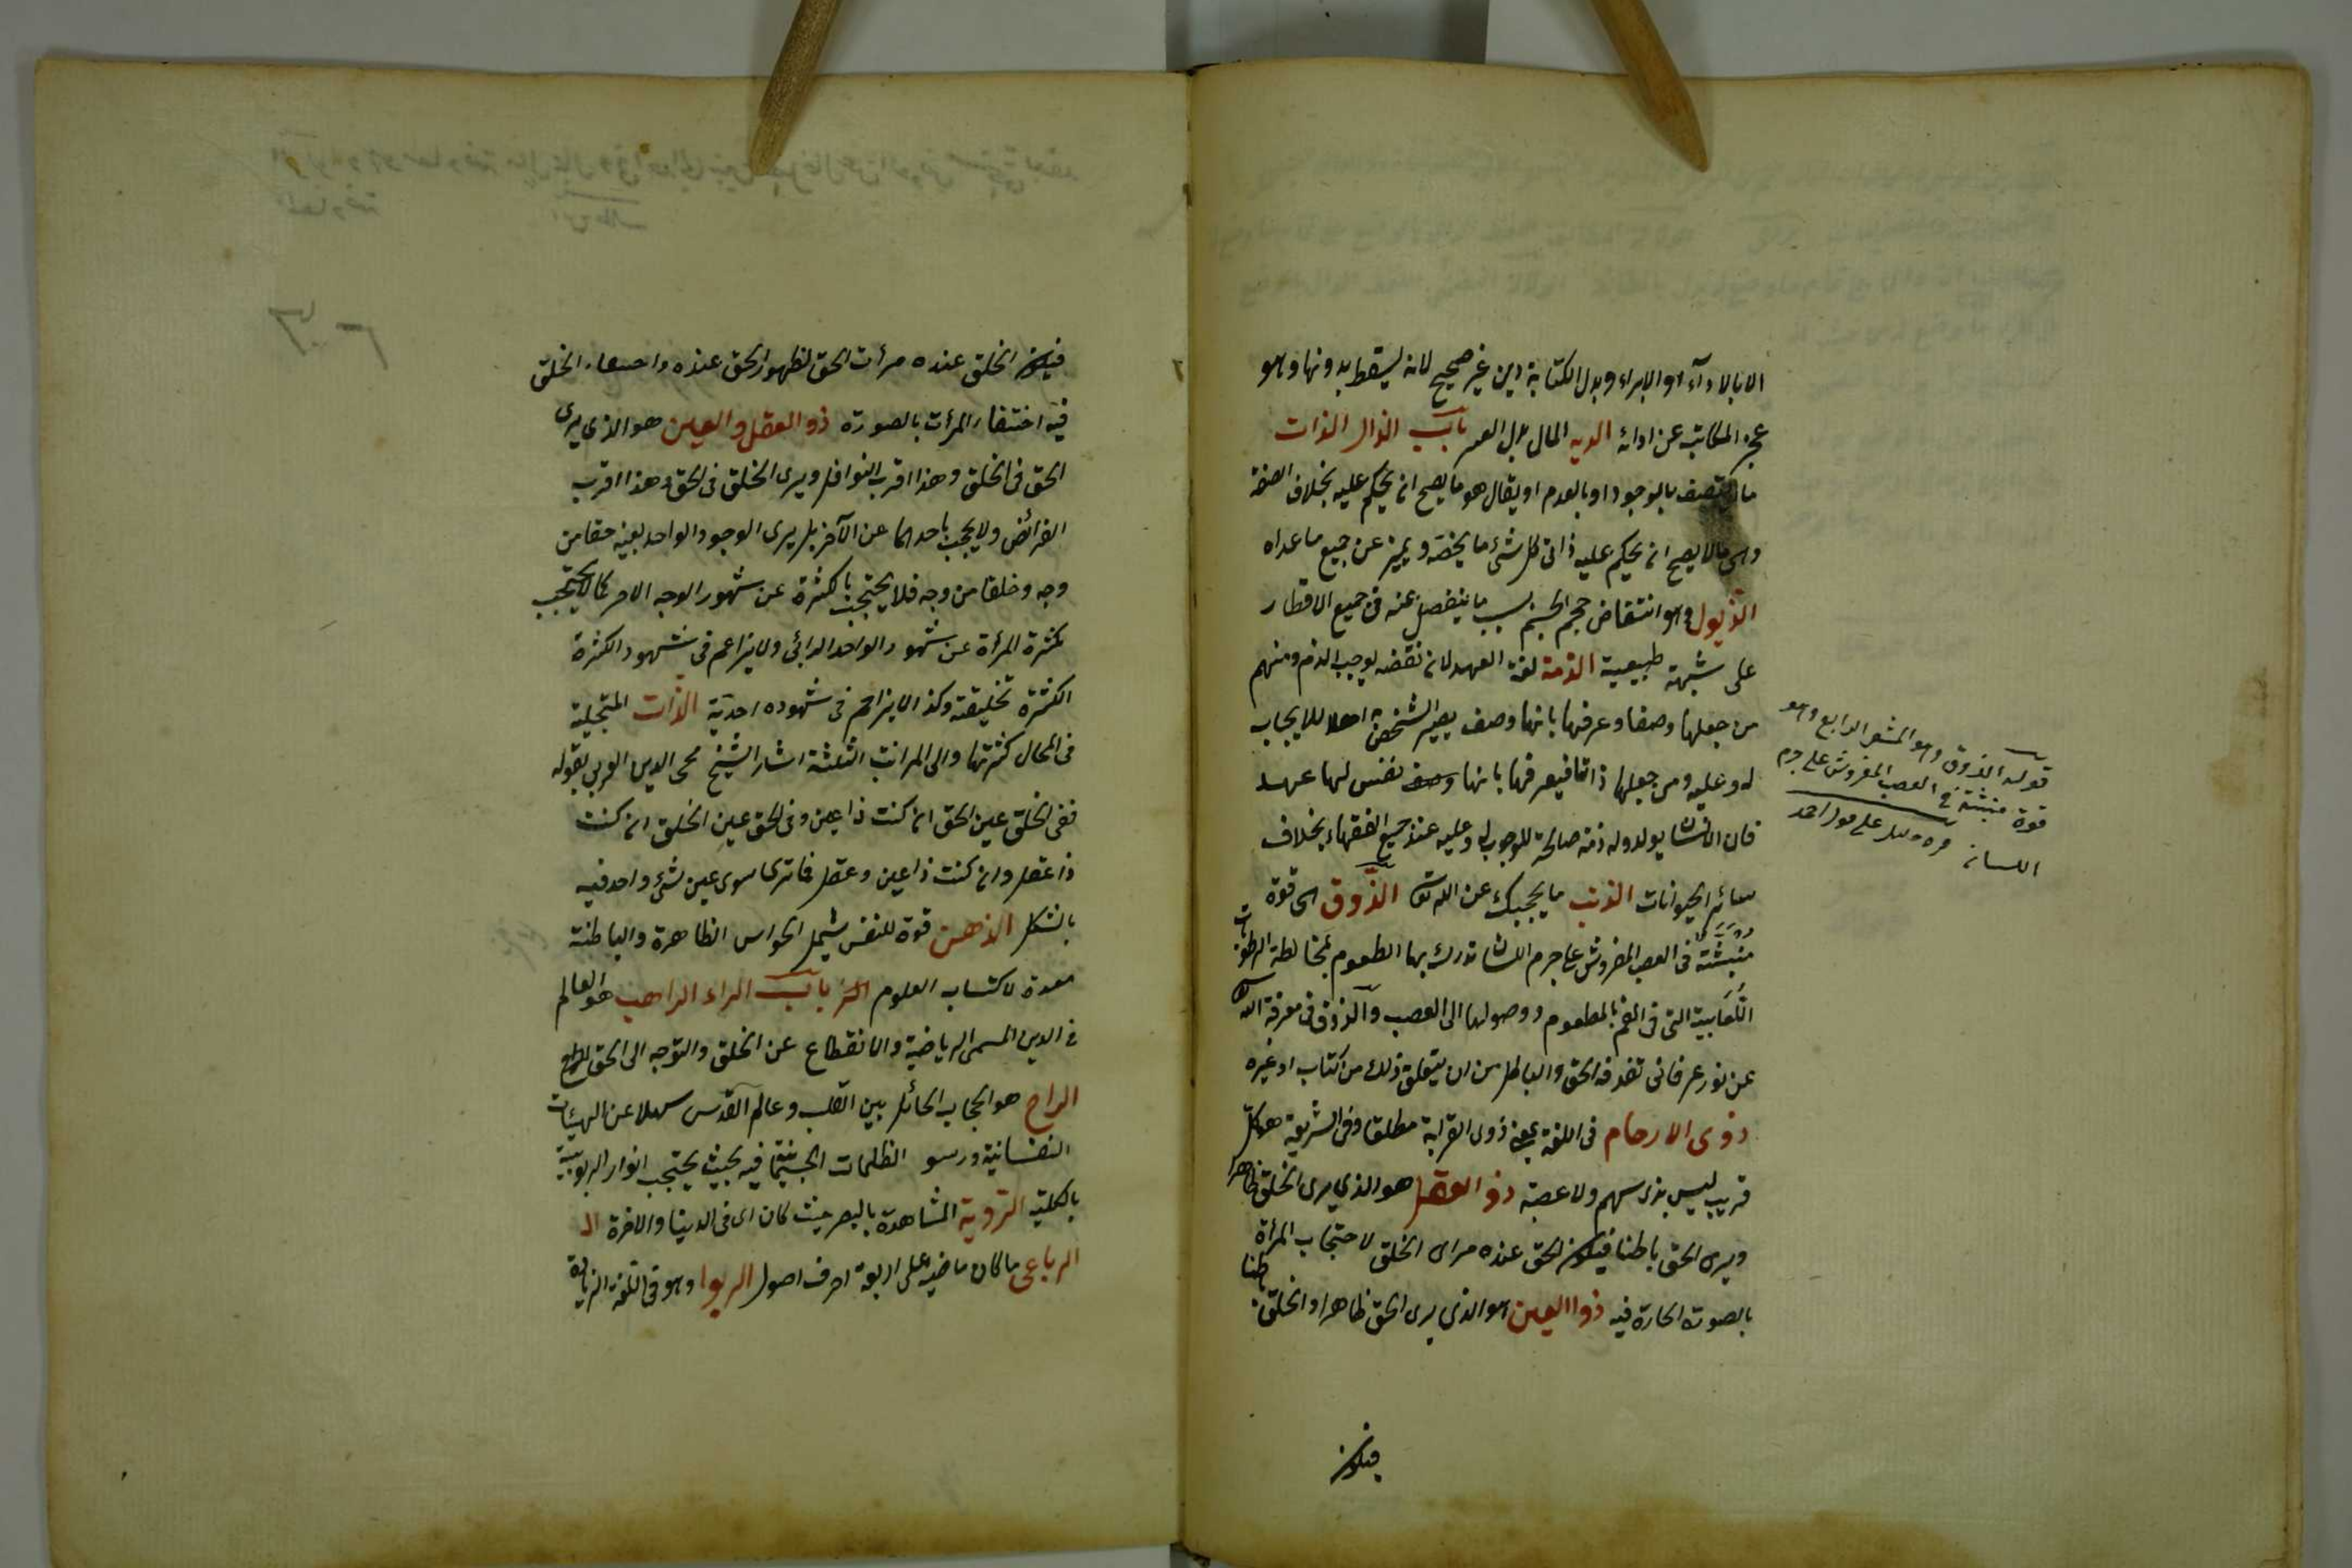 الا بالاداء او الابراء وبدل الكتابة دين غير صحيح لانه يسقط بدونها وهو
عجز المكاتب عن ادائه الديه المال بدل العمر باب الذال الذات
ما يتصف بالوجود او بالعدم او يقال هو ما يصح ان يحكم عليه بخلاف الصفة
وهى مالا يصح ان يحكم عليه ذاتى كل شئ ما يخصه ويميز عن جميع ماعداه
الذبول وهو انتقاض حجم الجسم بسبب ما ينفصل عنه فى جميع الاقطار
على شبهة طبيعية الذمة لغة العهد لان نقضه يوجب الذم ومنهم
من جعلها وصفا وعرفها بانها وصف يصير الشخص به اهلا للايجاب
له وعليه ومن جعلها ذاتا فيعرفها بانها وصف نفس لها عهد
فان الانسان يولد وله ذمة صالحة للوجوب له وعليه عند جميع الفقهاء بخلاف
سائر الحيوانات الذنب ما يحجبك عن الله تعالى الذوق هى قوة
منبثة فى العصب المفروش على جرم اللسان تدرك بها الطعوم بمخالطة الرطوبات
اللعابية التى فى الفم بالمطعوم ووصولها الى العصب والذوق فى معرفة الله
عن نور عرفانى تقذفه الحق والباطل من ان يتعلق ذلك من كتاب او غيره
ذوى الارحام فى اللغة بمعنى ذوى القرابة مطلقا وفى الشريعة هو كل
قريب ليس بذى سهم ولا عصبة ذو العقل هو الذي يرى الخلق ظاهرا
ويرى الحق باطنا فيكون الحق عنده مرات الخلق لاحتجاب المرأة
بالصورة الحارة فيه ذو العين هو الذى يرى الحق ظاهرا والخلق باطنا
فيكون
قوله الذوق وهو المشعر الرابع وهو
قوة منبثة فى العصب المفروش على جرم
اللسان
فيكون الخلق عنده مرأت الحق لظهور الحق عنده واختفاء الخلق
فيه اختفاء المرأت بالصورة ذو العقل والعين هو الذي يرى
الحق فى الخلق وهذا اقرب النوافل ويرى الخلق فى الحق وهذا اقرب
الفرائض ولا يحجب باحدهما عن الآخر بل يرى الوجود الواحد بعينه حقا من
وجه وخلقا من وجه فلا يحتجب بالكثرة عن شهود الوجه الاحد كما لا يحتجب
بكثرة المرأة عن شهود الواحد الرائى ولا يزاحم فى شهود الكثرة
الكثرة تخليقته وكذا لا يزاحم فى شهوده احدية الذات المتجلية
فى المحال كثرتها والى المراتب الثلثة اشار الشيخ محى الدين العربى بقوله
ففى الخلق عين الحق ان كنت ذا عين وفى الحق عين الخلق ان كنت
ذا عقل وان كنت ذا عين وعقل فما ترى سوى عين شئ واحد فيه
بالشكل الذهن قوة للنفس تشمل الحواس الظاهرة والباطنة
معدة لاكتساب العلوم باب الراء الراهب هو العالم
فى الدين المسمى الرياضية والانقطاع عن الخلق والتوجه الى الحق
الران هو الحجاب الحائل بين القلب وعالم القدس عن الهيئات
النفسانية ورسو الظلمات الجسمانية فيه بحيث يحتجب انوار الربوبية
بالكلية الروية المشاهدة بالبصر حيث كان اى فى الدنيا والاخرة
الرباعى ما كان ماضيه على اربعة احرف اصول الربوا وهو فى اللغة الزيادة